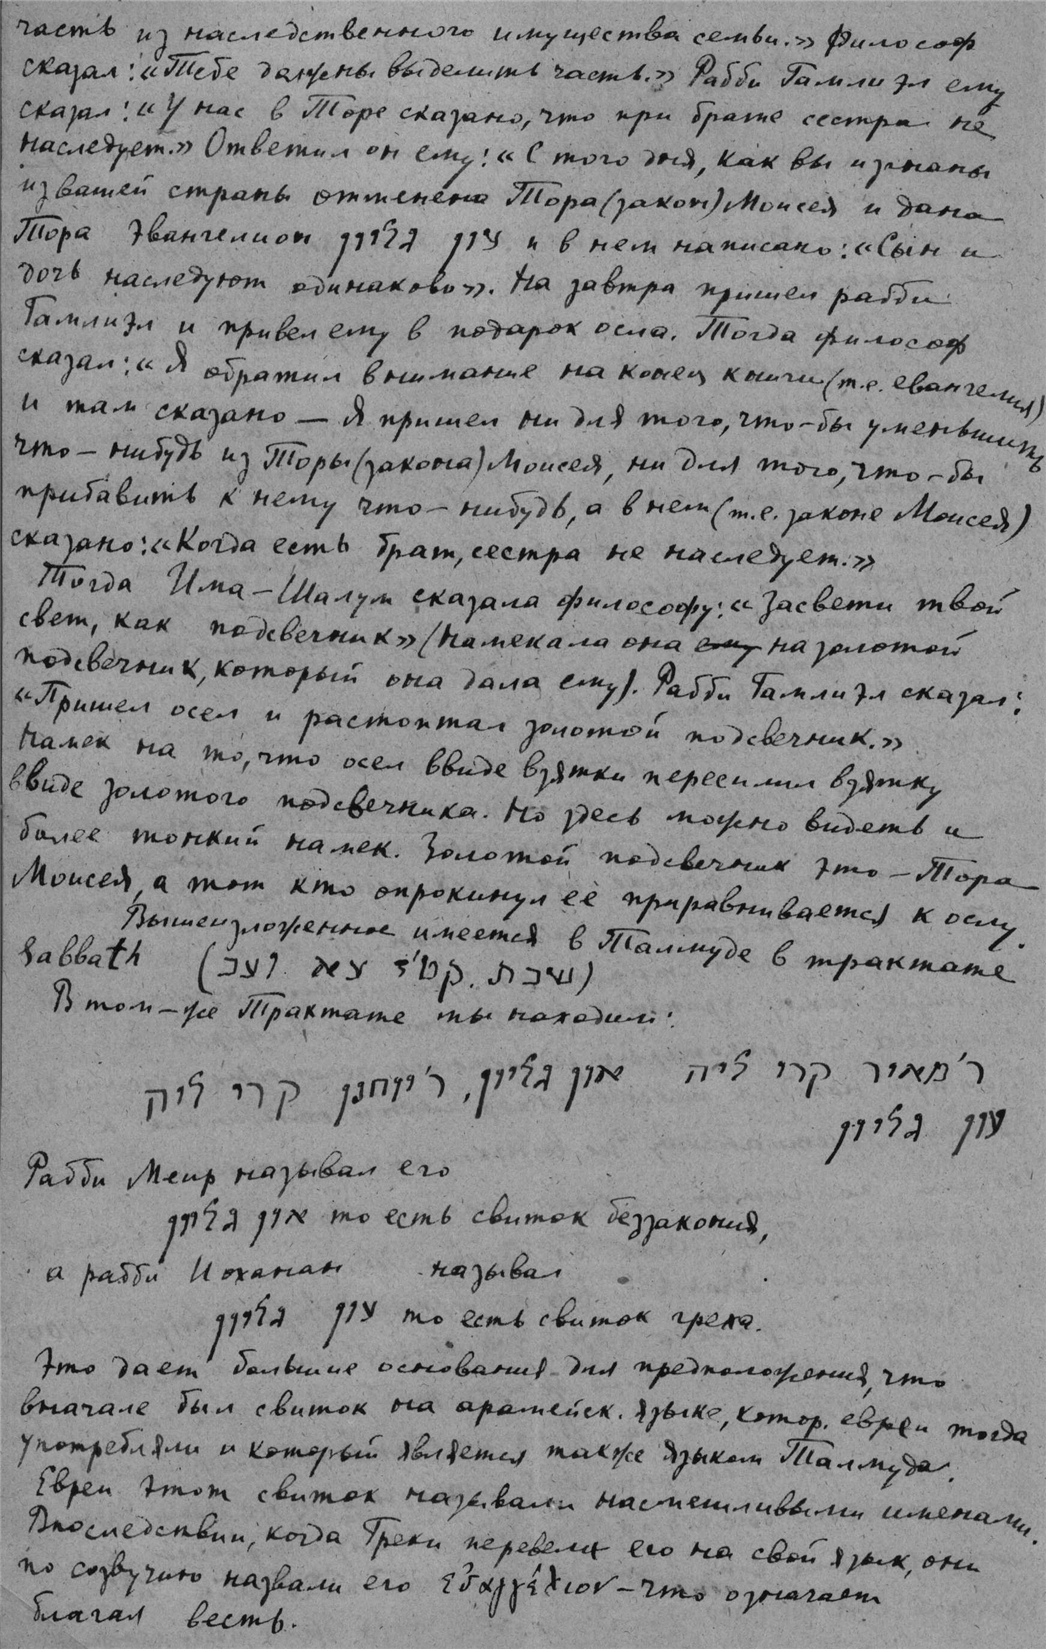 часть из наследственного имущества семьи.» Философ
сказал: «Тебе должны выделить часть.» Рабби Гамлиэл ему
сказал: «У нас в Торе сказано, что при брате сестра не
наследует.» Ответил он ему: «С того дня, как вы изгнаны
из вашей страны отменена Тора (закон) Моисея и дана
Тора Эвангелион עון גליון и в нем написано: «Сын и
дочь наследуют одинаково». На завтра пришел рабби
Гамлиэл и привел ему в подарок осла. Тогда философ
сказал: «Я обратил внимание на конец книги (т.е. евангелия)
и там сказано — Я пришел ни для того, что-бы уменьшить
что-нибудь из Торы (закона) Моисея, ни для того, что-бы
прибавить к нему что-нибудь, а в нем (т.е. законе Моисея)
сказано: «Когда есть брат, сестра не наследует.»
Тогда Има-Шалум сказала философу: «Засвети твой
свет, как подсвечник» (намекала она ему на золотой
подсвечник, который она дала ему). Рабби Гамлиэл сказал:
«Пришел осел и растоптал золотой подсвечник.»
Намек на то, что осел ввиде взятки пересилил взятку
ввиде золотого подсвечника. Но здесь можно видеть и
более тонкий намек. Золотой подсвечник это — Тора
Моисея, а тот кто опрокинул её приравнивается к ослу.
Вышеизложенное имеется в Талмуде в трактате
Sabbath (שבת. קט״ז ע״א וע״ב)
В том-же Трактате мы находим:
ר׳ מאיר קרי ליה און גליון, ר׳ יוחנן קרי ליה
עון גליון
Рабби Меир называл его
און גליון то есть свиток беззакония,
а рабби Иоханан называл
עון גליון то есть свиток греха.
Это дает большие основания для предположения, что
вначале был свиток на арамейск. языке, котор. евреи тогда
употребляли и который является также языком Талмуда.
Евреи этот свиток называли насмешливыми именами.
Впоследствии, когда Греки перевели его на свой язык, они
по созвучию назвали его Εὐαγγέλιον — что означает
благая весть.